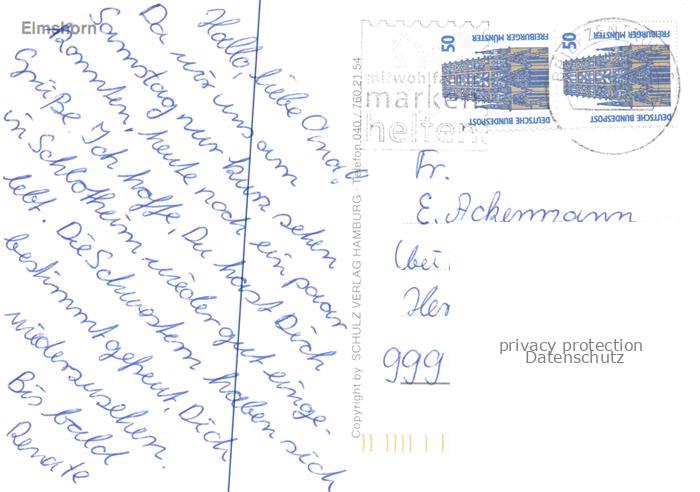 Elmshorn
Hallo, liebe Oma,
Da wir uns am
Samstag nur kurz sehen
konnten, heute noch ein paar
Grüße. Ich hoffe, Du hast Dich
in Schlotheim wieder gut einge-
lebt. Die Schwestern haben sich
bestimmt gefreut, Dich
wiederzusehen.
Bis bald
Renate
Copyright by SCHULZ VERLAG HAMBURG · Telefon 040 / 760 21 54
mit wohlfahrts
marken
helfen
50
FREIBURGER MÜNSTER
DEUTSCHE BUNDESPOST
50
FREIBURGER MÜNSTER
DEUTSCHE BUNDESPOST
Fr.
E. Ackermann
(bei
Her
999
privacy protection
Datenschutz